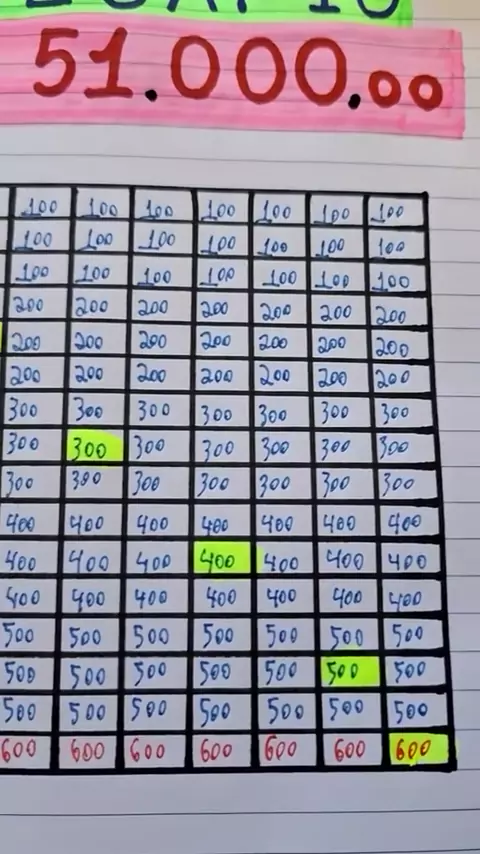 51.000.00
100 100 100 100 100 100 100
100 100 100 100 100 100 100
100 100 100 100 100 100 100
200 200 200 200 200 200 200
200 200 200 200 200 200 200
200 200 200 200 200 200 200
300 300 300 300 300 300 300
300 300 300 300 300 300 300
300 300 300 300 300 300 300
400 400 400 400 400 400 400
400 400 400 400 400 400 400
400 400 400 400 400 400 400
500 500 500 500 500 500 500
500 500 500 500 500 500 500
500 500 500 500 500 500 500
600 600 600 600 600 600 600